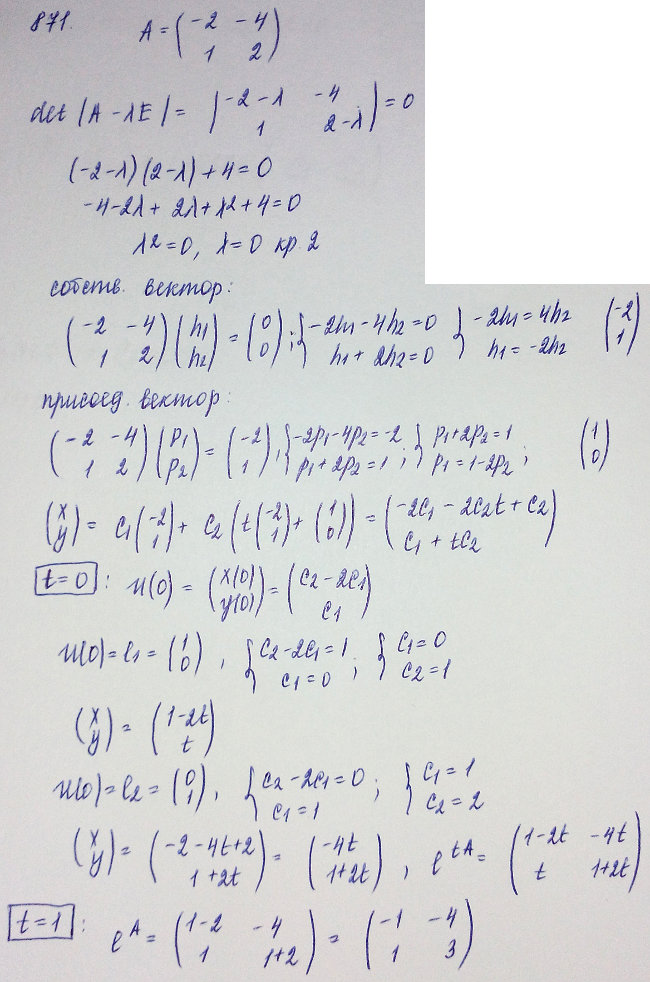 871. A = (-2 -4; 1 2)
det |A - λE| = |-2-λ -4; 1 2-λ| = 0
(-2-λ)(2-λ) + 4 = 0
-4-2λ + 2λ + λ² + 4 = 0
λ² = 0, λ = 0 кр. 2
собств. вектор:
(-2 -4; 1 2)(h₁; h₂) = (0; 0); {-2h₁-4h₂=0; h₁+2h₂=0 } {-2h₁=4h₂; h₁=-2h₂ (-2; 1)
присоед. вектор:
(-2 -4; 1 2)(p₁; p₂) = (-2; 1), {-2p₁-4p₂=-2; p₁+2p₂=1; {p₁+2p₂=1; p₁=1-2p₂; (1; 0)
(x; y) = C₁(-2; 1) + C₂(t(-2; 1) + (1; 0)) = (-2C₁-2C₂t+C₂; C₁+tC₂)
t=0: u(0) = (x(0); y(0)) = (C₂-2C₁; C₁)
u(0)=e₁=(1; 0), {C₂-2C₁=1; C₁=0; {C₁=0; C₂=1
(x; y) = (1-2t; t)
u(0)=e₂=(0; 1), {C₂-2C₁=0; C₁=1; {C₁=1; C₂=2
(x; y) = (-2-4t+2; 1+2t) = (-4t; 1+2t), e^{tA} = (1-2t -4t; t 1+2t)
t=1: e^A = (1-2 -4; 1 1+2) = (-1 -4; 1 3)